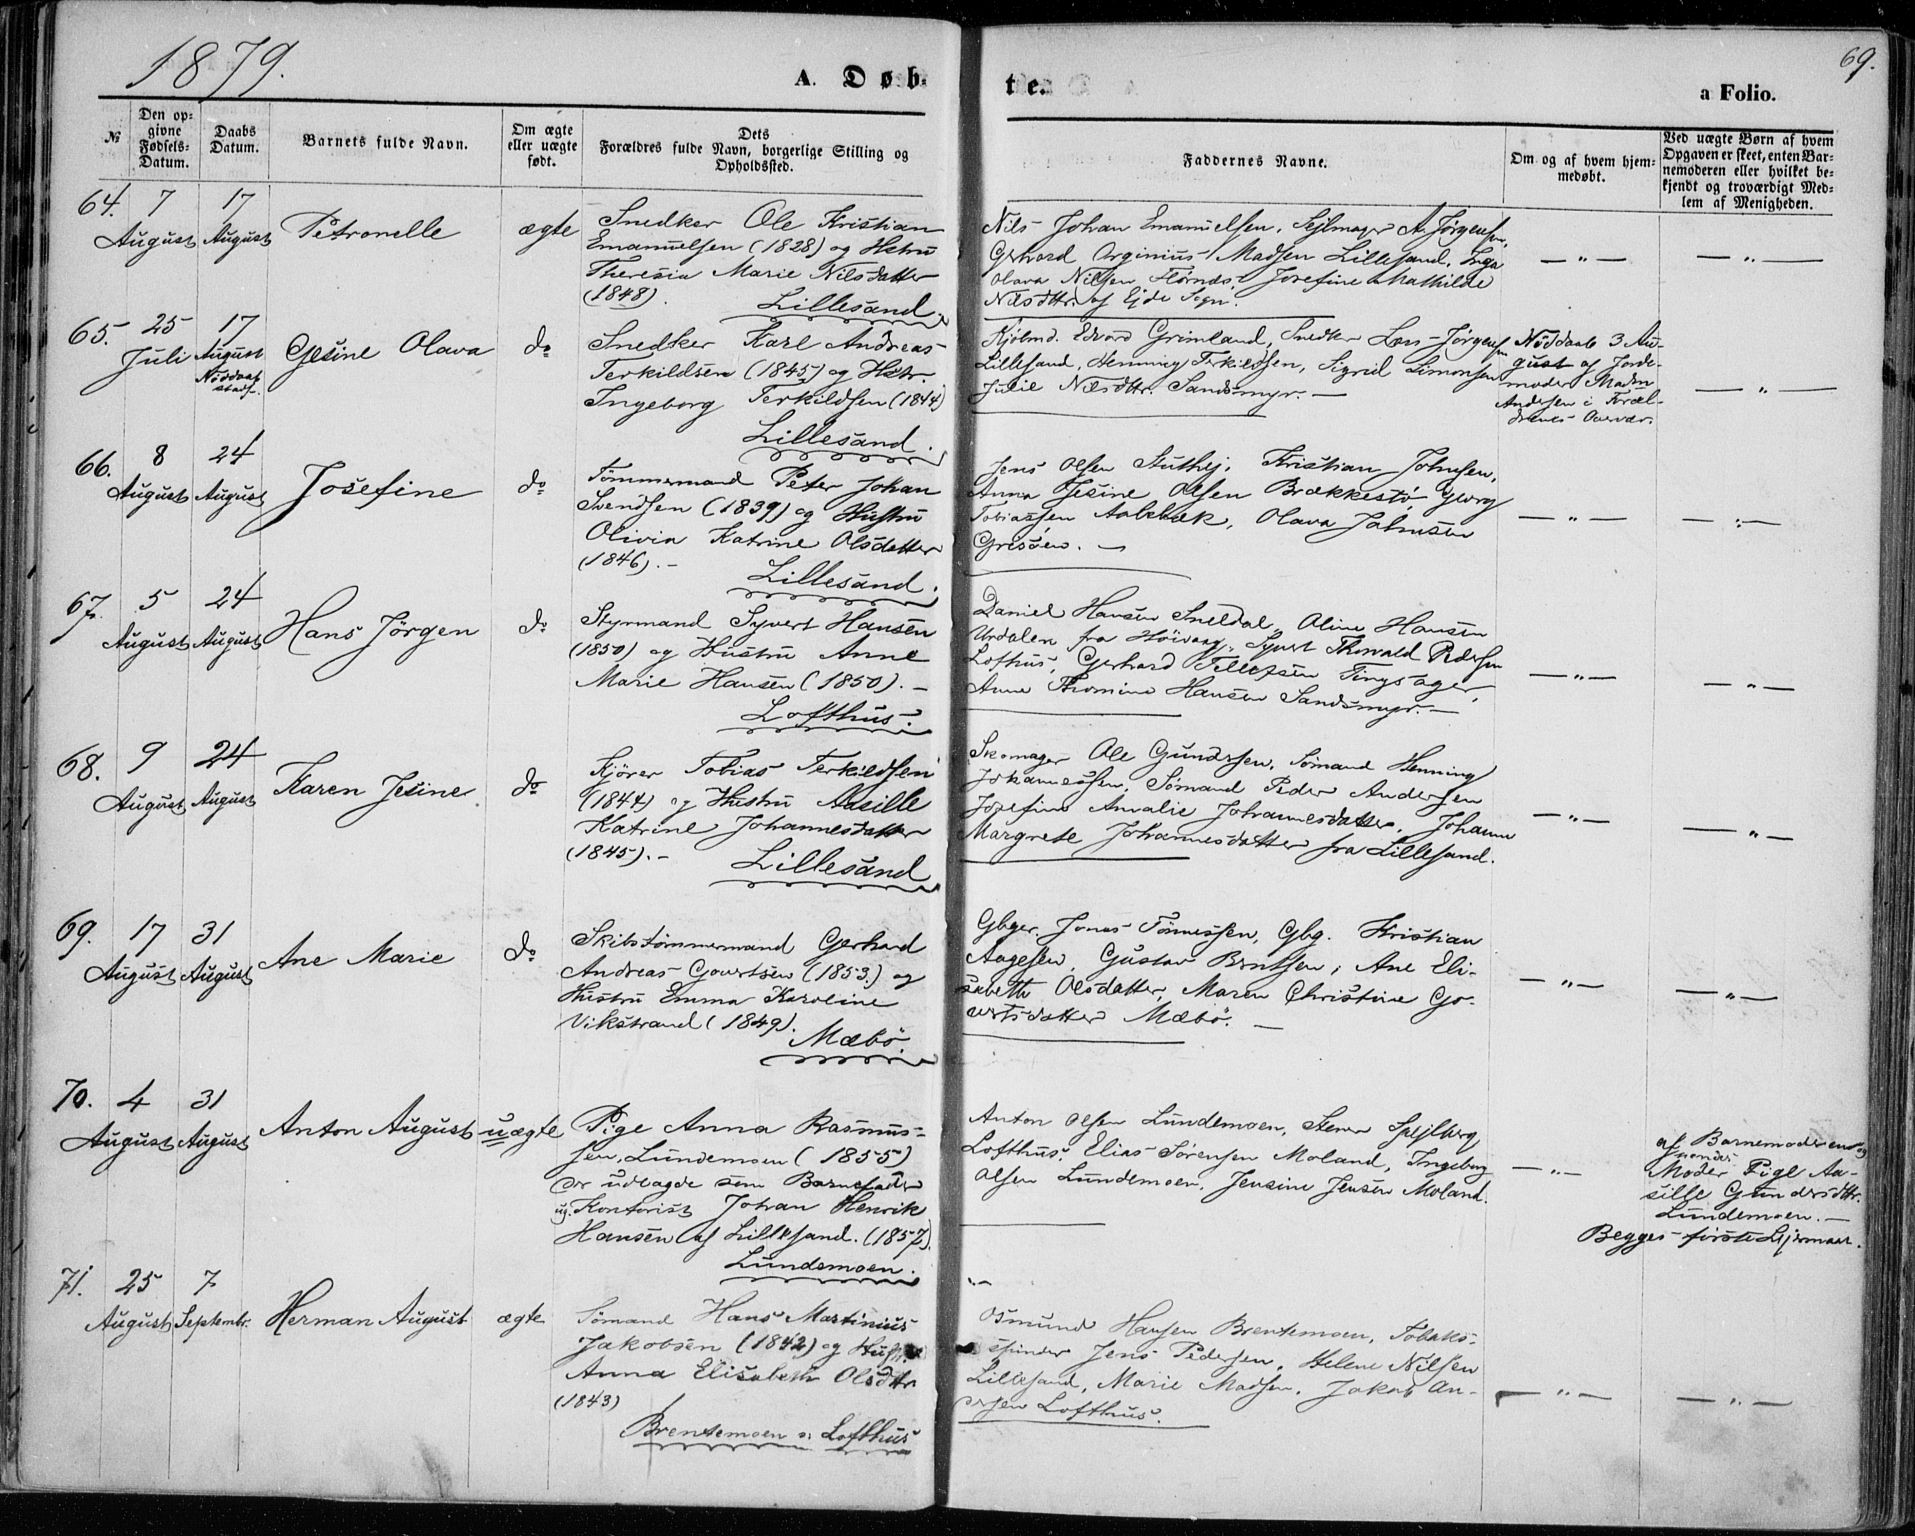 1879.
69.
A. Døb-
te.
a Folio.
№
Den op-
givne
Fødsels-
Datum.
Daabs
Datum.
Barnets fulde Navn.
Om ægte
eller uægte
født.
Dets
Forældres fulde Navn, borgerlige Stilling og
Opholdssted.
Faddernes Navne.
Om og af hvem hjem-
medøbt.
Ved uægte Børn af hvem
Opgaven er skeet, enten Bar-
nemoderen eller hvilket be-
kjendt og troværdigt Med-
lem af Menigheden.
64. 7 August
17 August
Petronelle
ægte
Snedker Ole Kristian
Emanuelsen (1828) og Hstru
Theresia Marie Nilsdatter
(1848).
Lillesand.
Nils Johan Emanuelsen, Sejlmager A. Jørgensen,
Gerhard Arginius Madsen Lillesand, Inga
Olava Nilsen, Josefine Mathilde
Nilsdtr. af Ejde Sogn.
— " —
— " —
65. 25 Juli
17 August
Nøddaab
stadf.
Gesine Olava
do
Snedker Karl Andreas
Terkildsen (1845) og Hstr.
Ingeborg Terkildsen (1844)
Lillesand.
Kjøbmd. Edvard Grimland, Snedker Lars Jørgensen
Lillesand, Henning Terkildsen, Sigrid Simonsen
Julie Nilsdtr. Sandsmyr. —
Nøddaab 3 Au-
gust af Jorde-
moder Madm
Andersen i Foræl-
drenes Overvær.
— " —
66. 8 August
24 August
Josefine
do
Tömmermand Peter Johan
Svendsen (1839) og Hustru
Olivia Katrine Olsdatter
(1846). —
Lillesand.
Jens Olsen Stuthej, Kristian Johnsen,
Anna Jesine Olsen Brækkestø, Georg
Tobiassen Aalebæk, Olava Johnsen
Grisöen. —
— " —
— " —
67. 5 August
24 August
Hans Jörgen
do
Styrmand Syvert Hansen
(1850) og Hustru Anne
Marie Hansen (1850). —
Lofthus.
Daniel Hansen Sneldal, Oline Hansen
Urdalen fra Höivaag, Syvert Thorvald Pedersen
Lofthus, Gerhard Tellefsen Tingsager,
Anne Thomine Hansen Sandsmyr. —
— " —
— " —
68. 9 August
24 August
Karen Jesine
do
Kjörer Tobias Terkildsen
(1844) og Hustru Aasille
Katrine Johannesdatter
(1845). —
Lillesand
Skomager Ole Gundersen, Sömand Henning
Johannessen, Sömand Peder Andersen
Josefine Amalie Johannesdatter, Johanne
Margrete Johannesdatter fra Lillesand.
— " —
— " —
69. 17 August
31 August
Ane Marie
do
Skibstömmermand Gerhard
Andreas Govertsen (1853.) og
Hustru Emma Karoline
Vikstrand (1849).
Mæbö.
Gbger. Jonas Tönnessen, Gbg. Kristian
Aagesen, Gustav Berntsen, Ane Eli-
sabeth Olsdatter, Maren Christine Go-
vertsdatter Mæbö. —
— " —
— " —
70. 4 August
31 August
Anton August
uægte
Pige Anna Rasmus-
sen, Lundemoen (1855)
der udlagde som Barnefader
ug. Kontorist Johan Henrik
Hansen af Lillesand. (1857).
Lundemoen.
Anton Olsen Lundemoen, Steen Spejlberg
Lofthus, Elias Sörensen Moland, Ingeborg
Olsen Lundemoen, Jensine Jensen Moland.
— " —
af Barnemoderen og
hendes
Moder Pige Aa-
sille Gundersdtr.
Lundemoen. —
Begges første Lejermaal.
71. 25 August
7 Septembr.
Herman August
ægte
Sömand Hans Martinius
Jakobsen (1842) og Hust.
Anna Elisabeth Olsdtr
(1843)
Brentemoen v. Lofthus
Osmund Hansen Brentemoen, Tobaks-
spinder Jens Pedersen, Helene Nilsen
Lillesand, Marie Madsen, Jakob An-
dersen Lofthus.
— " —
— " —